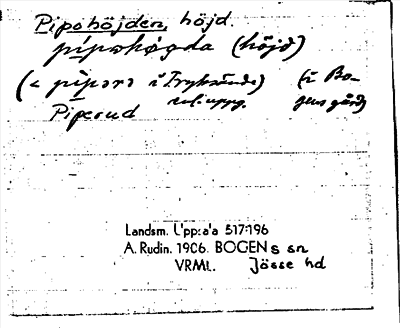 Pipohöjden, höjd.
pipωhǫgda (höjd)
(< pipǝrǝ i Fryksände) (i Bo-
Piperud enl. uppg. gens gård)
Landsm. Upp:a'a 517:196
A. Rudin. 1906. BOGENs sn
VRML. Jösse hd